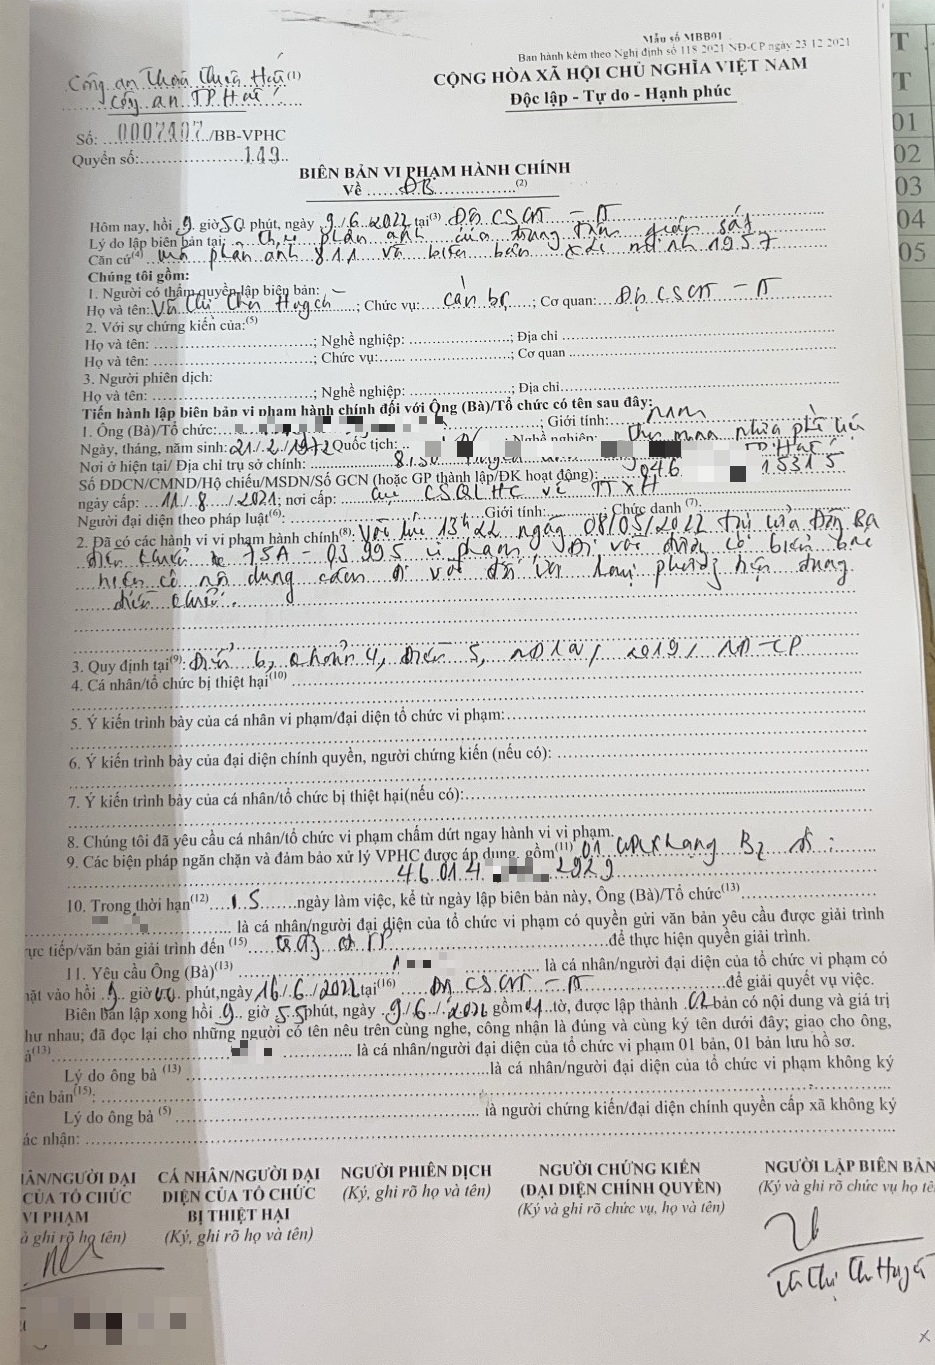 Mẫu số MBB01
Ban hành kèm theo Nghị định số 118 2021 NĐ-CP ngày 23 12 2021
Công an Thừa Thiên Huế (1)
Công an TP Huế
CỘNG HÒA XÃ HỘI CHỦ NGHĨA VIỆT NAM
Độc lập - Tự do - Hạnh phúc
Số: 0007407 /BB-VPHC
Quyển số: 149
BIÊN BẢN VI PHẠM HÀNH CHÍNH
Về ĐB (2)
Hôm nay, hồi 9 giờ 50 phút, ngày 9/6/2022 tại(3) Đội CSGT - TT
Lý do lập biên bản tại: phản ánh của trung tâm giám sát
Căn cứ(4) phản ánh 811 và biên bản xác minh 1957
Chúng tôi gồm:
1. Người có thẩm quyền lập biên bản:
Họ và tên: Võ Thị Thu ; Chức vụ: cán bộ ; Cơ quan: Đội CSGT - TT
2. Với sự chứng kiến của:(5)
Họ và tên: ; Nghề nghiệp: ; Địa chỉ
Họ và tên: ; Chức vụ: ; Cơ quan
3. Người phiên dịch:
Họ và tên: ; Nghề nghiệp: ; Địa chỉ
Tiến hành lập biên bản vi phạm hành chính đối với Ông (Bà)/Tổ chức có tên sau đây:
1. Ông (Bà)/Tổ chức: ; Giới tính: nam
Ngày, tháng, năm sinh: 21/2/1972 Quốc tịch: Nghề nghiệp:
Nơi ở hiện tại/ Địa chỉ trụ sở chính: TP Huế
Số ĐDCN/CMND/Hộ chiếu/MSDN/Số GCN (hoặc GP thành lập/ĐK hoạt động): 046 15315
ngày cấp: 11/8/2021; nơi cấp: cục CSQLHC về TTXH
Người đại diện theo pháp luật(6): Giới tính: ; Chức danh (7):
2. Đã có các hành vi vi phạm hành chính(8): Vào lúc 13h22 ngày 08/05/2022 tại cửa Đông Ba
điều khiển xe 75A - 03995 vi phạm: Đi vào đường có biển báo
hiệu có nội dung cấm đi vào đối với loại phương tiện đang
điều khiển.
3. Quy định tại(9): Điểm b, khoản 4, Điều 5, NĐ 100/2019/NĐ-CP
4. Cá nhân/tổ chức bị thiệt hại(10)
5. Ý kiến trình bày của cá nhân vi phạm/đại diện tổ chức vi phạm:
6. Ý kiến trình bày của đại diện chính quyền, người chứng kiến (nếu có):
7. Ý kiến trình bày của cá nhân/tổ chức bị thiệt hại(nếu có):
8. Chúng tôi đã yêu cầu cá nhân/tổ chức vi phạm chấm dứt ngay hành vi vi phạm.
9. Các biện pháp ngăn chặn và đảm bảo xử lý VPHC được áp dụng, gồm(11) 01 GPLX hạng B2 số:
46014 2929
10. Trong thời hạn(12) 15 ngày làm việc, kể từ ngày lập biên bản này, Ông (Bà)/Tổ chức(13)
là cá nhân/người đại diện của tổ chức vi phạm có quyền gửi văn bản yêu cầu được giải trình
rực tiếp/văn bản giải trình đến (15) để thực hiện quyền giải trình.
11. Yêu cầu Ông (Bà)(13) là cá nhân/người đại diện của tổ chức vi phạm có
mặt vào hồi 9 giờ 00 phút, ngày 16/6/2022 tại(16) Đội CSGT - TT để giải quyết vụ việc.
Biên bản lập xong hồi 9 giờ 55 phút, ngày 9/6/2022 gồm 01 tờ, được lập thành 02 bản có nội dung và giá trị
như nhau; đã đọc lại cho những người có tên nêu trên cùng nghe, công nhận là đúng và cùng ký tên dưới đây; giao cho ông,
(13) là cá nhân/người đại diện của tổ chức vi phạm 01 bản, 01 bản lưu hồ sơ.
Lý do ông bà (13) là cá nhân/người đại diện của tổ chức vi phạm không ký
iên bản(15):
Lý do ông bà (5) là người chứng kiến/đại diện chính quyền cấp xã không ký
ác nhận:
ÂN/NGƯỜI ĐẠI
CỦA TỔ CHỨC
VI PHẠM
à ghi rõ họ tên)
CÁ NHÂN/NGƯỜI ĐẠI
DIỆN CỦA TỔ CHỨC
BỊ THIỆT HẠI
(Ký, ghi rõ họ và tên)
NGƯỜI PHIÊN DỊCH
(Ký, ghi rõ họ và tên)
NGƯỜI CHỨNG KIẾN
(ĐẠI DIỆN CHÍNH QUYỀN)
(Ký và ghi rõ chức vụ, họ và tên)
NGƯỜI LẬP BIÊN BẢN
(Ký và ghi rõ chức vụ họ tê
Võ Thị Thu
T
T
01
02
03
04
05